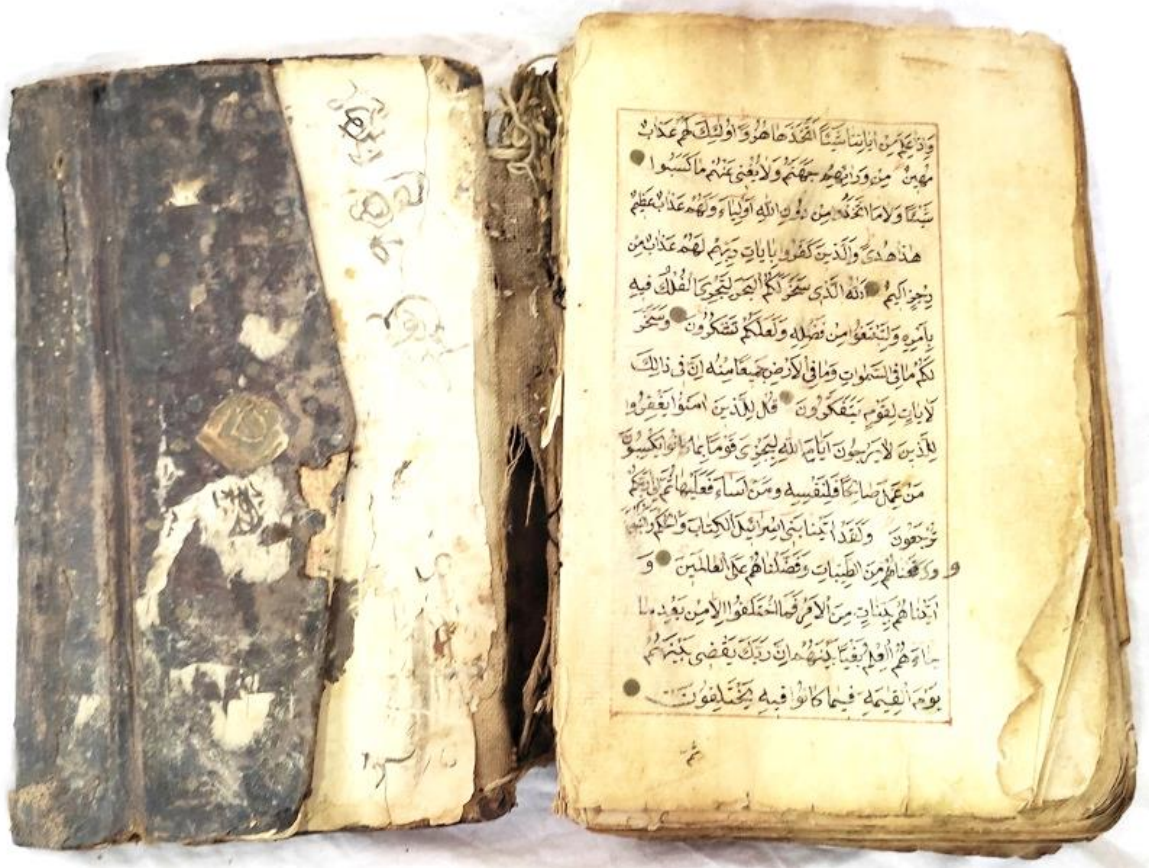 وَاِذَا عَلِمَ مِنْ اٰيَاتِنَا شَيْئًا اتَّخَذَهَا هُزُوًا اُولٰئِكَ لَهُمْ عَذَابٌ
مُهِينٌ مِنْ وَرَائِهِمْ جَهَنَّمُ وَلَا يُغْنِى عَنْهُمْ مَا كَسَبُوا
شَيْئًا وَلَا مَا اتَّخَذُوا مِنْ دُونِ اللّٰهِ اَوْلِيَاءَ وَلَهُمْ عَذَابٌ عَظِيمٌ
هٰذَا هُدًى وَالَّذِينَ كَفَرُوا بِاٰيَاتِ رَبِّهِمْ لَهُمْ عَذَابٌ مِنْ
رِجْزٍ اَلِيمٌ اَللّٰهُ الَّذِى سَخَّرَ لَكُمُ الْبَحْرَ لِتَجْرِىَ الْفُلْكُ فِيهِ
بِاَمْرِهِ وَلِتَبْتَغُوا مِنْ فَضْلِهِ وَلَعَلَّكُمْ تَشْكُرُونَ وَسَخَّرَ
لَكُمْ مَا فِى السَّمٰوَاتِ وَمَا فِى الْاَرْضِ جَمِيعًا مِنْهُ اِنَّ فِى ذٰلِكَ
لَاٰيَاتٍ لِقَوْمٍ يَتَفَكَّرُونَ قُلْ لِلَّذِينَ اٰمَنُوا يَغْفِرُوا
لِلَّذِينَ لَا يَرْجُونَ اَيَّامَ اللّٰهِ لِيَجْزِىَ قَوْمًا بِمَا كَانُوا يَكْسِبُونَ
مَنْ عَمِلَ صَالِحًا فَلِنَفْسِهِ وَمَنْ اَسَاءَ فَعَلَيْهَا ثُمَّ اِلٰى رَبِّكُمْ
تُرْجَعُونَ وَلَقَدْ اٰتَيْنَا بَنِى اِسْرَائِيلَ الْكِتَابَ وَالْحُكْمَ
وَرَزَقْنَاهُمْ مِنَ الطَّيِّبَاتِ وَفَضَّلْنَاهُمْ عَلَى الْعَالَمِينَ وَ
اٰتَيْنَاهُمْ بَيِّنَاتٍ مِنَ الْاَمْرِ فَمَا اخْتَلَفُوا اِلَّا مِنْ بَعْدِ مَا
جَاءَهُمُ الْعِلْمُ بَغْيًا بَيْنَهُمْ اِنَّ رَبَّكَ يَقْضِى بَيْنَهُمْ
يَوْمَ الْقِيٰمَةِ فِيمَا كَانُوا فِيهِ يَخْتَلِفُونَ